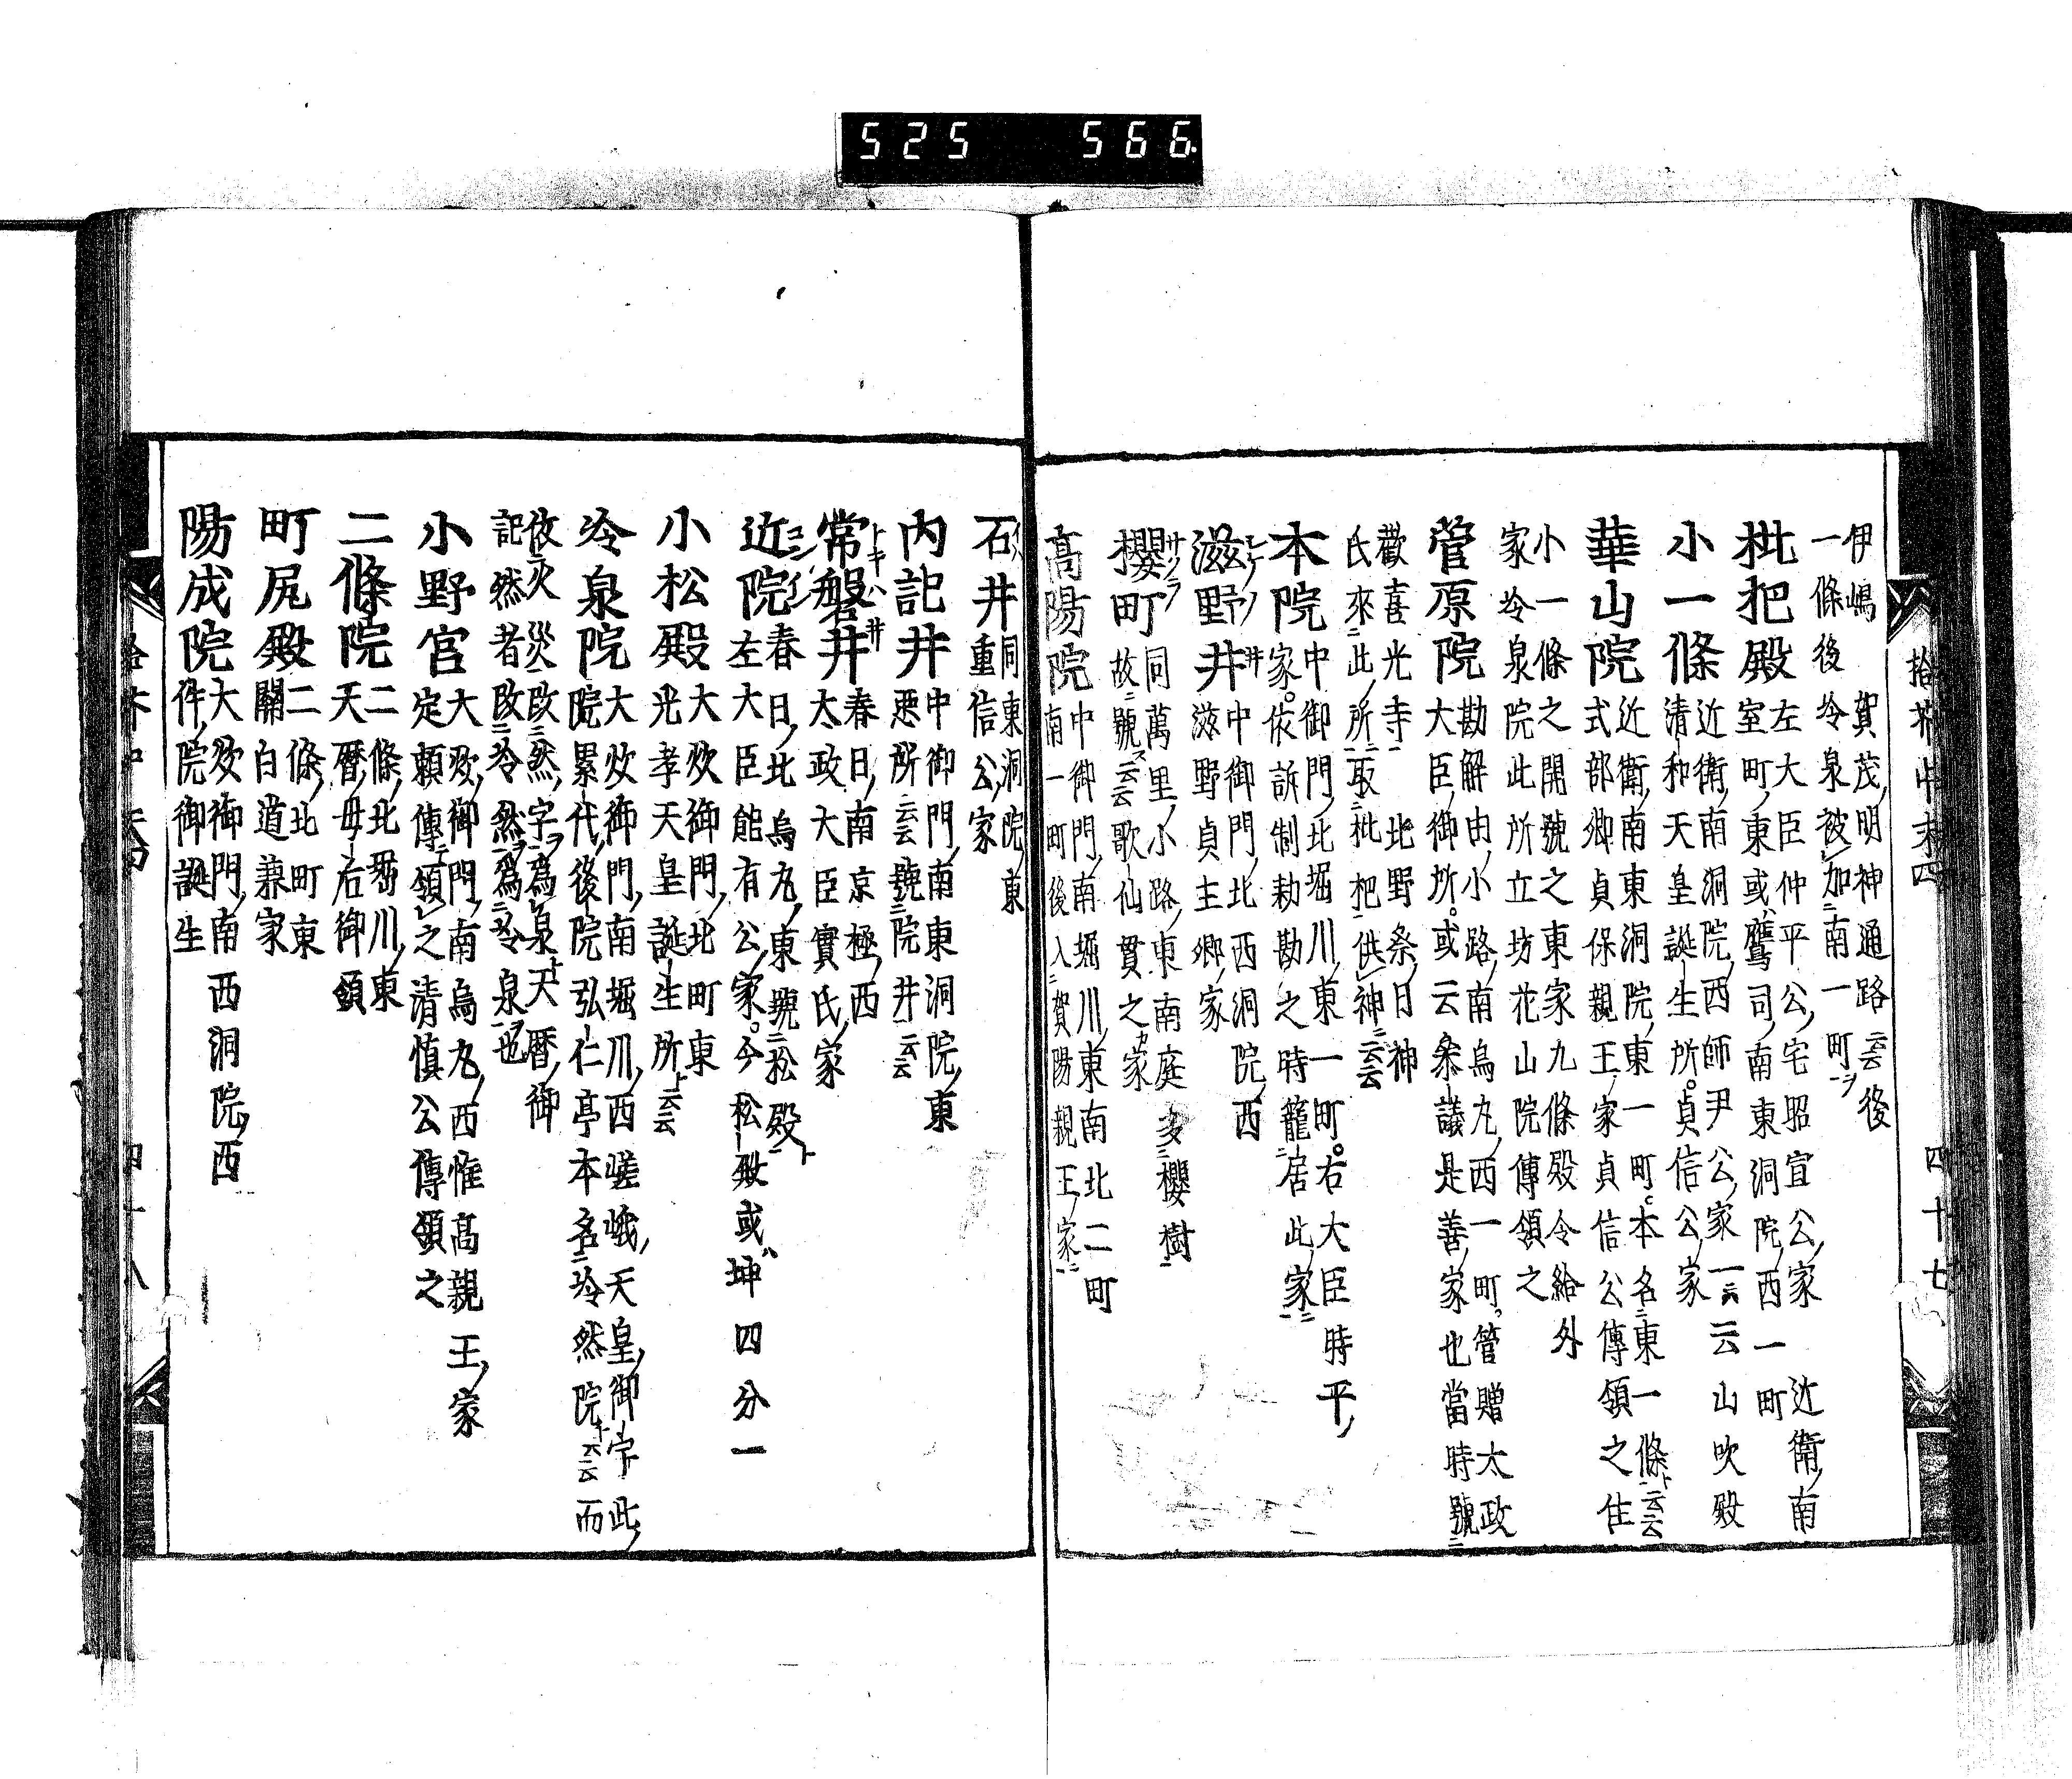 525 566
拾芥中末四 四十七
伊嶋 賀茂明神通路云云後
一條後冷泉被加南一町
枇杷殿
左大臣仲平公宅昭宣公家 近衛南
室町東或鷹司南東洞院西一町
小一條
近衛南洞院西師尹公家一云云山吹殿
清和天皇誕生所貞信公家
華山院
近衛南東洞院東一町本名東一條云云
式部卿貞保親王家貞信公傳領之住
小一條之開號之東家九條殿令給外
家冷泉院此所立坊花山院傳領之
菅原院
勘解由小路南烏丸西一町菅贈太政
大臣御所或云叅議是善家也當時號
歡喜光寺 北野祭日神
氏來此所取枇杷供神云云
本院
中御門北堀川東一町右大臣時平
家依訴制勅勘之時籠居此家
滋野井 シゲノ井
中御門北西洞院西
滋野貞主卿家
櫻町 サクラ
同萬里小路東南庭多櫻樹
故號云云歌仙貫之家
高陽院
中御門南堀川東南北二町
南一町後入賀陽親王家
石井
同東洞院東
重信公家
内記井
中御門南東洞院東
惡所云云號院井云云
常磐井 トキハ井
春日南京極西
太政大臣實氏家
近院 コンイン
春日北烏丸東號松殿ト
左大臣能有公家今松殿或ハ坤四分一
小松殿
大炊御門北町東
光孝天皇誕生所云云
冷泉院
大炊御門南堀川西嵯峨天皇御宇此
院累代後院弘仁亭本名冷然院云云而
依火災改然字為泉天暦御
記然者改冷然為冷泉也
小野宮
大炊御門南烏丸西惟高親王家
定頼傳領之清慎公傳領之
二條院
二條北堀川東
天暦母后御領
町尻殿
二條北町東
關白道兼家
陽成院
大炊御門南西洞院西
件院御誕生
四十八